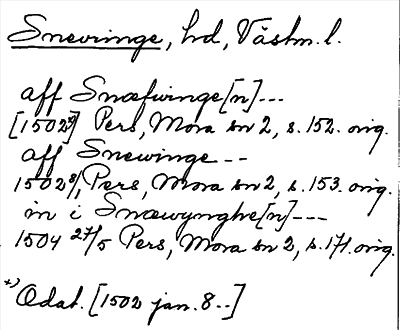 Snevringe, hd, Västm. l.
aff Snæfwinge[n]---
[1502*)] Pers, Mora sn 2, s. 152. orig.
aff Snewinge---
1502 8/1 Pers, Mora sn 2, s. 153. orig.
in i Snæwynghe[n]---
1504 27/5 Pers, Mora sn 2, s. 171. orig.
*) Odat. [1502 jan. 8--]